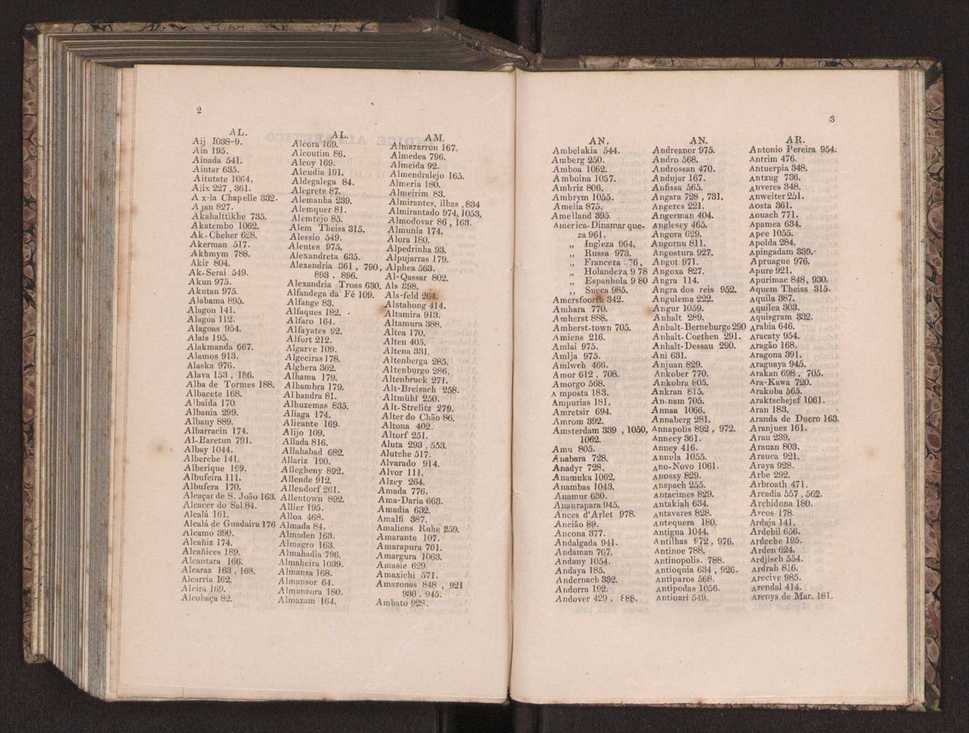 2
AL.
Aij 1038-9.
Ain 195.
Ainada 541.
Aintar 635.
Aitutate 1064.
Aïx 227, 361.
A x-la Chapelle 332.
A jan 827.
Akahalttikhe 735.
Akatembo 1062.
Ak-Cheher 628.
Akerman 517.
Akhmym 788.
Akir 804.
Ak-Serai 549.
Akun 975.
Akutan 975.
Alabama 895.
Alagon 141.
Alagoa 112.
Alagoas 954.
Alais 195.
Alakmanda 667.
Alamos 913.
Alaska 976.
Alava 153, 186.
Alba de Tormes 188.
Albacete 168.
Albaida 170.
Albania 299.
Albany 889.
Albarracin 174.
Al-Baretun 791.
Albay 1044.
Alberche 141.
Alberique 169.
Albufeira 111.
Albufera 170.
Alcaçar de S. João 163.
Alcacer do Sal 84.
Alcalá 161.
Alcalá de Guadaira 176
Alcamo 390.
Alcañiz 174.
Alcañices 189.
Alcantara 166.
Alcaraz 163, 168.
Alcarria 162.
Alcira 169.
Alcobaça 82.
AL.
Alcora 169.
Alcoutim 86.
Alcoy 169.
Alcudia 191.
Aldegalega 84.
Alegrete 87.
Alemanha 239.
Alemquer 81.
Alemtejo 85.
Alem Theiss 315.
Alessio 549.
Alentes 975.
Alexandreta 635.
Alexandria 361, 790,
893, 896.
Alexandria Troas 630.
Alfandega da Fé 109.
Alfange 83.
Alfaques 182.
Alfaro 164.
Alfayates 92.
Alfort 212.
Algarve 109.
Algeciras 178.
Alghera 362.
Alhama 179.
Alhambra 179.
Alhandra 81.
Alhuzemas 835.
Aliaga 174.
Alicante 169.
Alijo 109.
Allada 816.
Allahabad 682.
Allariz 190.
Allegheny 892.
Allende 912.
Allendorf 261.
Allentown 892.
Allier 195.
Alloa 468.
Almada 84.
Almaden 163.
Almagro 163.
Almahadia 796.
Almaheira 1039.
Almansa 168.
Almansor 64.
Almanzora 180.
Almazam 164.
AM.
Almazarron 167.
Almedea 796.
Almeida 92.
Almendralejo 165.
Almeria 180.
Almeirim 83.
Almirantes, ilhas, 834
Almirantado 974, 1053,
Almodovar 86, 163.
Almunia 174.
Alora 180.
Alpedrinha 93.
Alpujarras 179.
Alphea 563.
Al-Qassar 802.
Als 398.
Als-feld 264.
Alstahoug 414.
Altamira 913.
Altamura 388.
Altea 170.
Alten 405.
Altena 331.
Altenberga 285.
Altenburgo 286.
Altenbruck 271.
Alt-Breisach 258.
Altmühl 250.
Alt-Strelitz 279.
Alter do Chão 86.
Altona 402.
Altorf 251.
Aluta 293, 553.
Alutche 517.
Alvarado 914.
Alvor 111.
Alzey 264.
Amada 776.
Ama-Daria 663.
Amadia 632.
Amalfi 387.
Amaliens Ruhe 259.
Amarante 107.
Amarapura 701.
Amargura 1063.
Amasie 629.
Amaxichi 571.
Amazonas 848, 921
936, 945.
Ambato 928.
3
AN.
Ambelakia 544.
Amberg 250.
Amboa 1062.
Amboina 1057.
Ambriz 806.
Ambrym 1055.
Amelia 875.
Amelland 395.
America-Dinamarque-
za 961.
„ Ingleza 964.
„ Russa 973.
„ Franceza 76.
„ Holandeza 9 78
„ Espanhola 9 80
„ Sueca 985.
Amersfoorth 342.
Amhara 770.
Amherst 888.
Amherst-town 705.
Amiens 216.
Amlai 975.
Amlja 975.
Amlweh 466.
Amor 612, 708.
Amorgo 568.
Amposta 183.
Ampurias 181.
Amretsir 694.
Amrom 392.
Amsterdam 339, 1050,
1062.
Amu 805.
Anabara 728.
Anadyr 728.
Anamuka 1062.
Anambas 1043.
Anamur 630.
Anaurapara 945.
Ances d'Arlet 978.
Ancião 89.
Ancona 377.
Andalgada 941.
Andaman 767.
Andany 1054.
Andaya 185.
Andernach 332.
Andorra 192.
Andover 429, 888.
AN.
Andreanor 975.
Andro 568.
Androssan 470.
Andujar 167.
Anfissa 565.
Angara 728, 731.
Angeres 221.
Angerman 404.
Anglesey 465.
Angora 629.
Angornu 811.
Angostura 927.
Angot 971.
Angoxa 827.
Angra 114.
Angra dos reis 952.
Angulema 222.
Angur 1059.
Anhalt 289.
Anhalt-Berneburge 290
Anhalt-Coethen 291.
Anhalt-Dessau 290.
Ani 631.
Anjuan 829.
Ankober 770.
Ankobra 805.
Ankran 815.
An-nam 705.
Annaa 1066.
Annaberg 281.
Annapolis 892, 972.
Annecy 361.
Anney 416.
Annula 1055.
Ano-Novo 1061.
Anossy 829.
Anspach 255.
Antacimes 829.
Antakiah 634.
Antavares 828.
Antequera 180.
Antigua 1044.
Antilhas 972, 976.
Antinoe 788.
Antinopolis. 788.
Antioquia 634, 926.
Antiparos 568.
Antipodas 1056.
Antiuari 549.
AR.
Antonio Pereira 954.
Antrim 476.
Antuerpia 348.
Antzug 736.
Anveres 348.
Anweiter 251.
Aosta 361.
Aouach 771.
Apamea 634.
Apee 1055.
Apolda 284.
Apingadam 339.
Apruague 976.
Apure 921.
Apurimac 848, 930.
Aquem Theiss 315.
Aquila 387.
Aquilea 303.
Aquisgram 332.
Arabia 646.
Aracaty 954.
Aragão 168.
Aragona 391.
Araguaya 945.
Arakan 698, 705.
Ara-Kawa 720.
Arakoba 565.
Araktschejef 1061.
Aran 183.
Aranda de Duero 163.
Aranjuez 161.
Arau 239.
Arauzan 803.
Arauca 921.
Araya 928.
Arbe 292.
Arbroath 471.
Arcadia 557, 562.
Archidona 180.
Arcos 178.
Ardaja 141.
Ardebil 656.
Ardeche 195.
Arden 624.
Ardjisch 554.
Ardrah 816.
Arecive 985.
Arendal 414.
Arenys de Mar. 181.